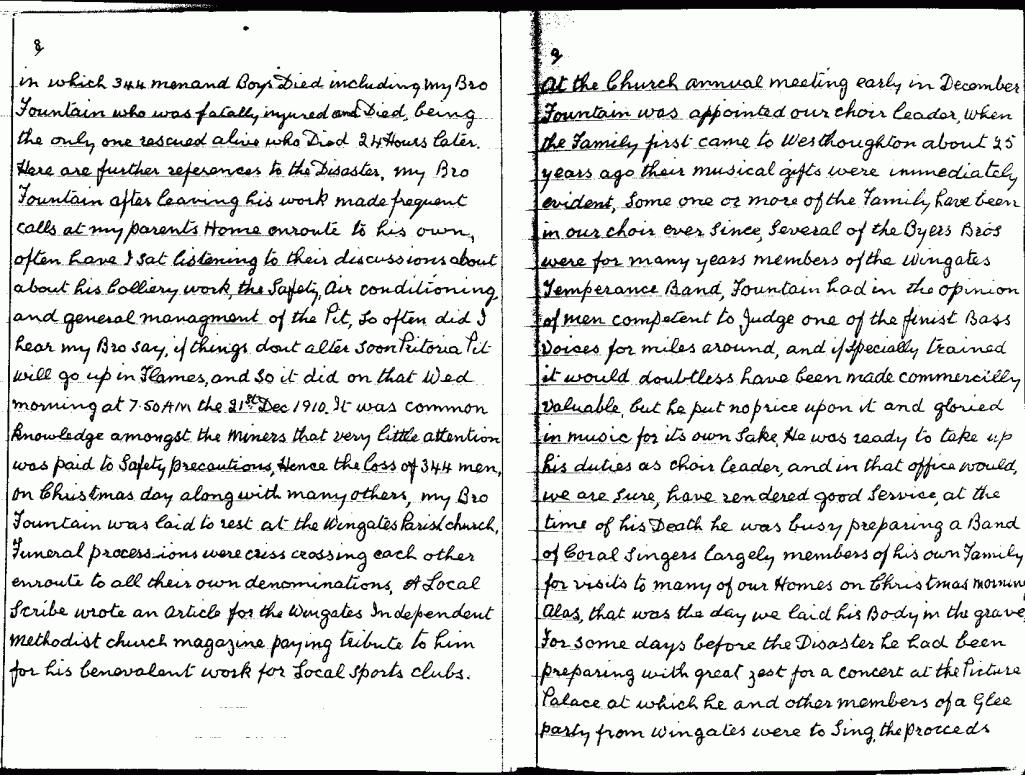 8
in which 344 men and Boys Died including my Bro
Fountain who was fatally injured and Died, being
the only one rescued alive who Died 24 Hours later.
Here are further references to the Disaster, my Bro
Fountain after leaving his work made frequent
calls at my parents Home enroute to his own,
often have I sat listening to their discussions about
about his Colliery work, the Safety, Air conditioning
and general managment of the Pit, So often did I
hear my Bro say, if things dont alter soon Pritoria Pit
will go up in Flames, and so it did on that Wed
morning at 7.50 AM the 21st Dec 1910. It was common
knowledge amongst the miners that very little attention
was paid to Safety precautions, Hence the loss of 344 men,
on Christmas day along with many others, my Bro
Fountain was laid to rest at the Wingates Parish church,
Funeral processions were criss crossing each other
enroute to all their own denominations, A Local
Scribe wrote an article for the Wingates Independent
Methodist church magazine paying tribute to him
for his benevalent work for Local Sports clubs.
9
At the Church annual meeting early in December
Fountain was appointed our choir leader, when
the Family first came to Westhoughton about 25
years ago their musical gifts were immediately
evident, Some one or more of the Family have been
in our choir ever since, Several of the Byers Bros
were for many years members of the Wingates
Temperance Band, Fountain had in the opinion
of men competent to Judge one of the finist Bass
Voices for miles around, and if specially trained
it would doubtless have been made commercilly
Valuable, but he put no price upon it and gloried
in music for its own Sake, He was ready to take up
his duties as choir leader, and in that office would,
we are sure, have rendered good Service, at the
time of his Death he was busy preparing a Band
of Coral Singers largely members of his own Family
for visits to many of our Homes on Christmas morning
Alas, that was the day we laid his Body in the grave,
For some days before the Disaster he had been
preparing with great zest for a concert at the Picture
Palace at which he and other members of a Glee
party from Wingates were to Sing, the proceeds